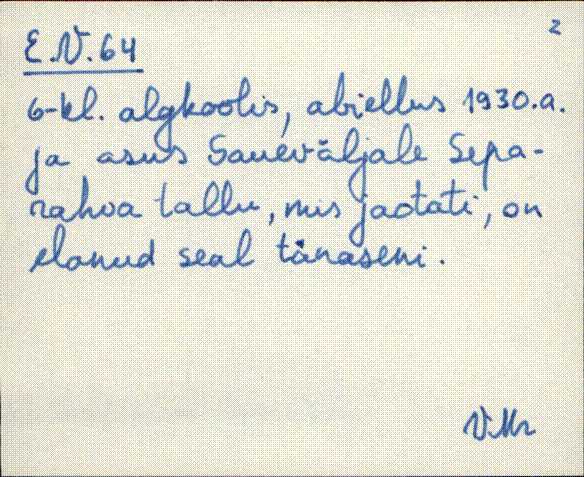 2
E.V.64
6-kl. algkoolis, abiellus 1930.a.
ja asus Saueväljale Sepa-
rahva tallu, mis jaotati, on
elanud seal tänaseni.
VMr